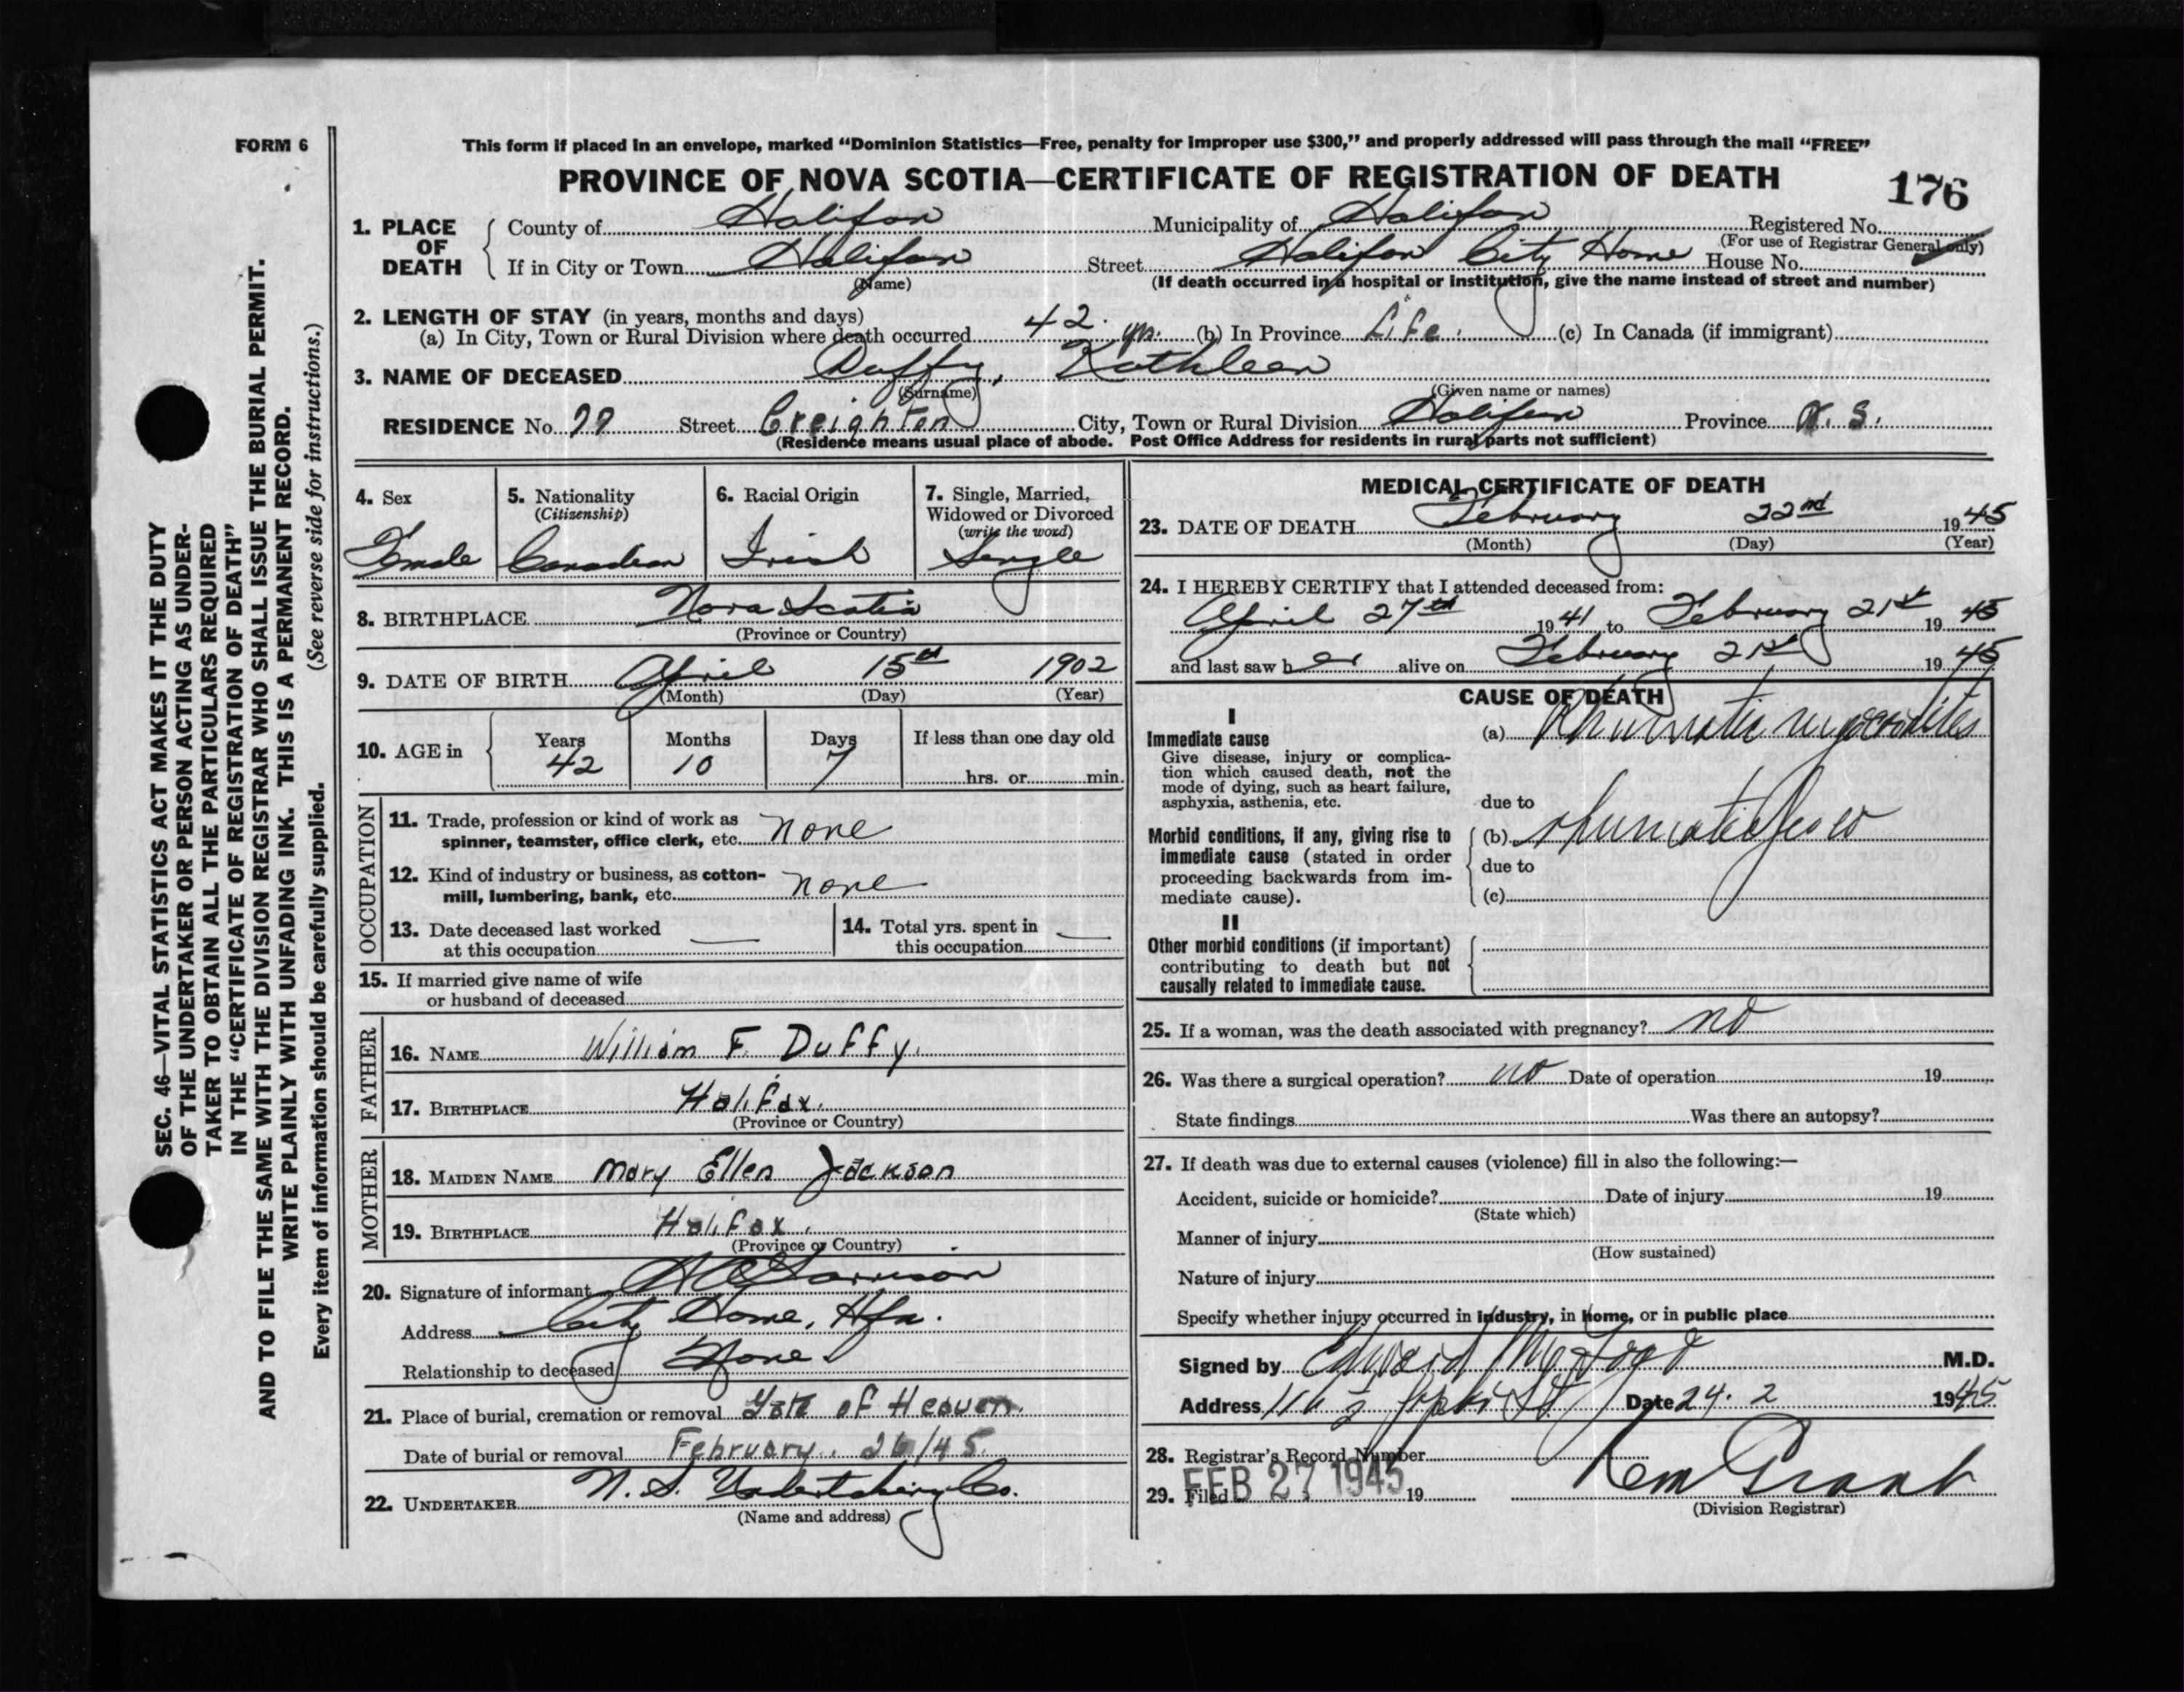 FORM 6
This form if placed in an envelope, marked "Dominion Statistics—Free, penalty for improper use $300," and properly addressed will pass through the mail "FREE"
PROVINCE OF NOVA SCOTIA—CERTIFICATE OF REGISTRATION OF DEATH
176
1. PLACE OF DEATH
County of Halifax Municipality of Halifax Registered No.
(For use of Registrar General only)
If in City or Town Halifax Street Halifax City Home House No.
(Name) (If death occurred in a hospital or institution, give the name instead of street and number)
2. LENGTH OF STAY (in years, months and days)
(a) In City, Town or Rural Division where death occurred 42 yrs. (b) In Province Life. (c) In Canada (if immigrant)
3. NAME OF DECEASED Duffy, Kathleen
(Surname) (Given name or names)
RESIDENCE No. Street Creighton City, Town or Rural Division Halifax Province N. S.
(Residence means usual place of abode. Post Office Address for residents in rural parts not sufficient)
4. Sex
Female
5. Nationality
(Citizenship)
Canadian
6. Racial Origin
Irish
7. Single, Married,
Widowed or Divorced
(write the word)
Single
8. BIRTHPLACE Nova Scotia
(Province or Country)
9. DATE OF BIRTH April 15th 1902
(Month) (Day) (Year)
10. AGE in
Years Months Days If less than one day old
42 10 7 hrs. or min.
OCCUPATION
11. Trade, profession or kind of work as
spinner, teamster, office clerk, etc. none
12. Kind of industry or business, as cotton-
mill, lumbering, bank, etc. none
13. Date deceased last worked
at this occupation —
14. Total yrs. spent in
this occupation —
15. If married give name of wife
or husband of deceased
FATHER
16. NAME William F. Duffy.
17. BIRTHPLACE Halifax.
(Province or Country)
MOTHER
18. MAIDEN NAME Mary Ellen Jackson
19. BIRTHPLACE Halifax.
(Province or Country)
20. Signature of informant
Address City Home, Hfx.
Relationship to deceased None.
21. Place of burial, cremation or removal Gate of Heaven.
Date of burial or removal February. 26/45
22. UNDERTAKER N. S. Undertaking Co.
(Name and address)
MEDICAL CERTIFICATE OF DEATH
23. DATE OF DEATH February 22nd 1945
(Month) (Day) (Year)
24. I HEREBY CERTIFY that I attended deceased from:
April 27th 1941 to February 21st 1945
and last saw her alive on February 21st 1945
CAUSE OF DEATH
I
Immediate cause
Give disease, injury or complica-
tion which caused death, not the
mode of dying, such as heart failure,
asphyxia, asthenia, etc.
(a) Rhumatic myocarditis
due to
Morbid conditions, if any, giving rise to
immediate cause (stated in order
proceeding backwards from im-
mediate cause).
(b) rhumatic fever
due to
(c)
II
Other morbid conditions (if important)
contributing to death but not
causally related to immediate cause.
25. If a woman, was the death associated with pregnancy? no
26. Was there a surgical operation? no Date of operation 19
State findings Was there an autopsy?
27. If death was due to external causes (violence) fill in also the following:—
Accident, suicide or homicide? Date of injury 19
(State which)
Manner of injury
(How sustained)
Nature of injury
Specify whether injury occurred in industry, in home, or in public place
Signed by Edward M.D.
Address St Date 24. 2 1945
28. Registrar's Record Number
29. Filed FEB 27 1945 19
Grant
(Division Registrar)
SEC. 46—VITAL STATISTICS ACT MAKES IT THE DUTY
OF THE UNDERTAKER OR PERSON ACTING AS UNDER-
TAKER TO OBTAIN ALL THE PARTICULARS REQUIRED
IN THE "CERTIFICATE OF REGISTRATION OF DEATH"
AND TO FILE THE SAME WITH THE DIVISION REGISTRAR WHO SHALL ISSUE THE BURIAL PERMIT.
WRITE PLAINLY WITH UNFADING INK. THIS IS A PERMANENT RECORD.
Every item of information should be carefully supplied. (See reverse side for instructions.)